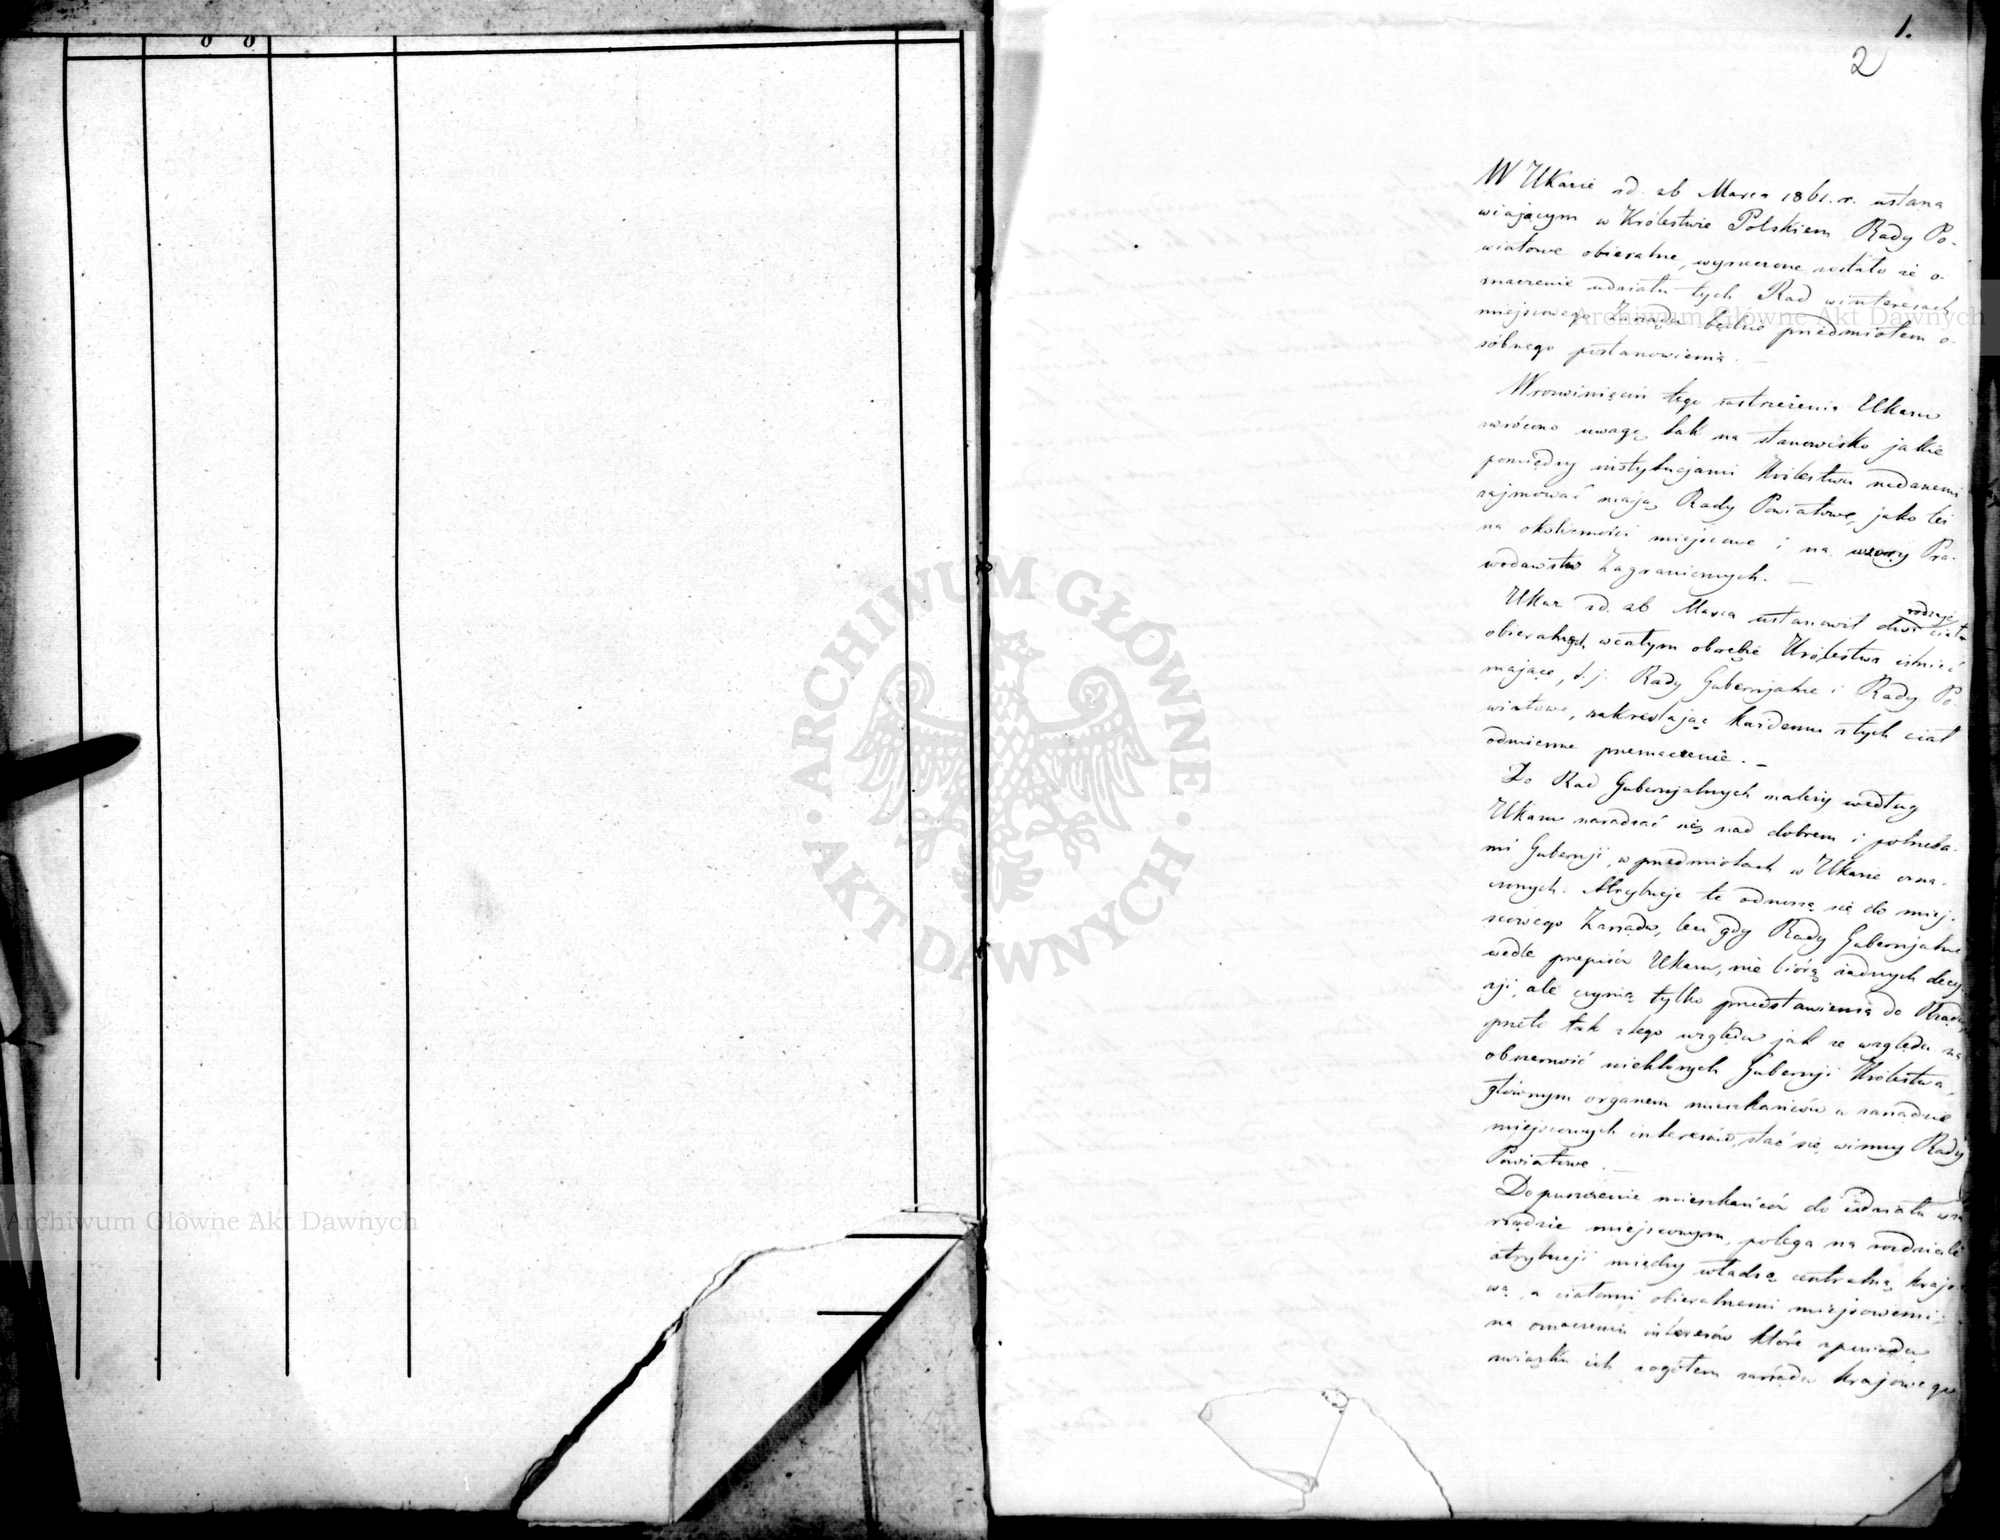 1.
2
W Ukazie zd. 26 Marca 1861. r. ustana
wiającym w Królestwie Polskiem Rady Po-
wiatowe obieralne, wyrzeczone zostało że o-
znaczenie udziału tych Rad w interesach
miejscowego Zarządu będzie przedmiotem o-
sobnego postanowienia. —
W rozwinięciu tego zastrzeżenia Ukazu
zwrócono uwagę tak na stanowisko jakie
pomiędzy instytucjami Królestwu nadanemi
zajmować mają Rady Powiatowe, jako też
na okoliczności miejscowe i na wzory Pra-
wodawstw Zagranicznych. —
Ukaz zd. 26 Marca ustanowił dwa rodzaje ciał
obieralnych w całym obrębie Królestwa istnieć
mające, t.j. Rady Gubernjalne i Rady Po-
wiatowe, zakreślając każdemu z tych ciał
odmienne przeznaczenie. —
Do Rad Gubernjalnych należy według
Ukazu naradzać się nad dobrem i potrzeba-
mi Gubernji, w przedmiotach w Ukazie ozna-
czonych. Atrybucje te odnoszą się do miej-
scowego Zarządu, lecz gdy Rady Gubernjalne
wedle przepisów Ukazu, nie biorą żadnych decy-
zji, ale czynią tylko przedstawienia do Rządu
przeto tak z tego względu jak ze względu na
obszerność niektórych Gubernji Królestwa,
głównym organem mieszkańców w zarządzie
miejscowych interesów, stać się winny Rady
Powiatowe. —
Dopuszczenie mieszkańców do udziału w za
rządzie miejscowym, polega na rozdziale
atrybucji między władzą centralną krajo
wą, a ciałami obieralnemi miejscowemi;
na oznaczeniu interesów które z powodu
związku ich z ogółem zarządu krajowego
Archiwum Główne Akt Dawnych
Archiwum Główne Akt Dawnych
ARCHIWUM GŁÓWNE
AKT DAWNYCH